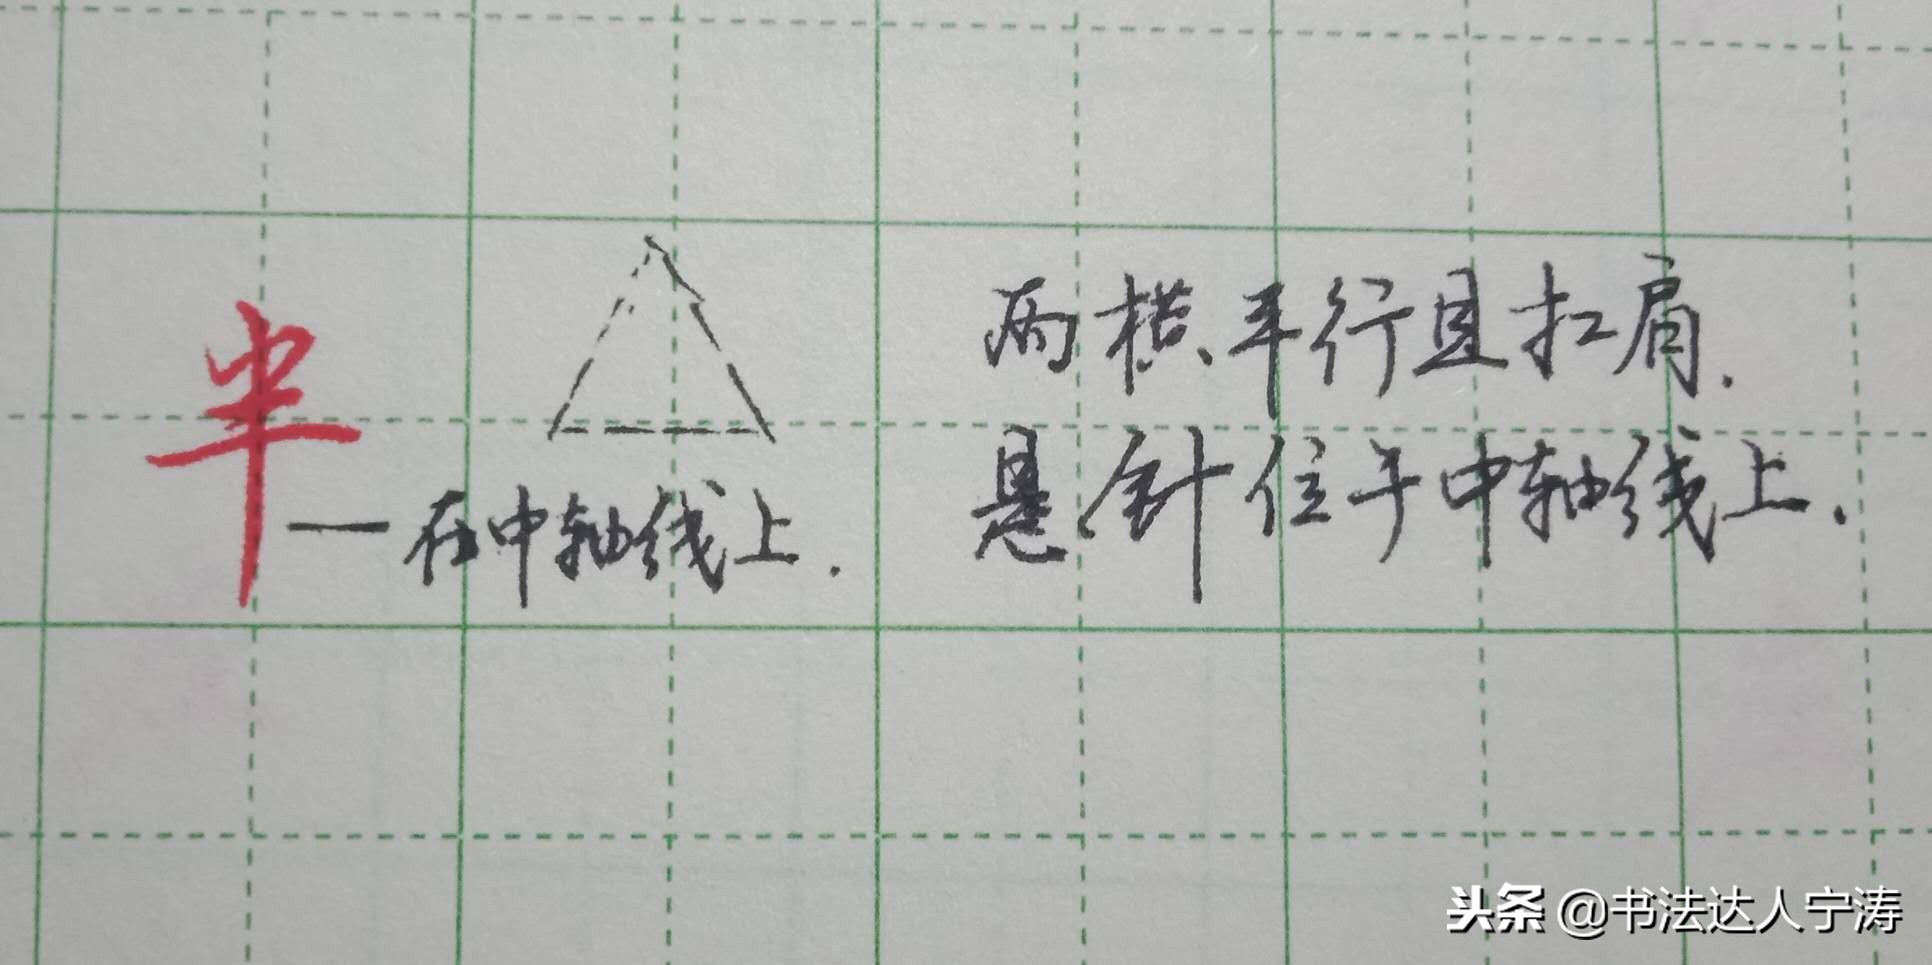 半
一在中轴线上.
两横、平行且扛肩.
悬针位于中轴线上.
头条 @书法达人宁涛